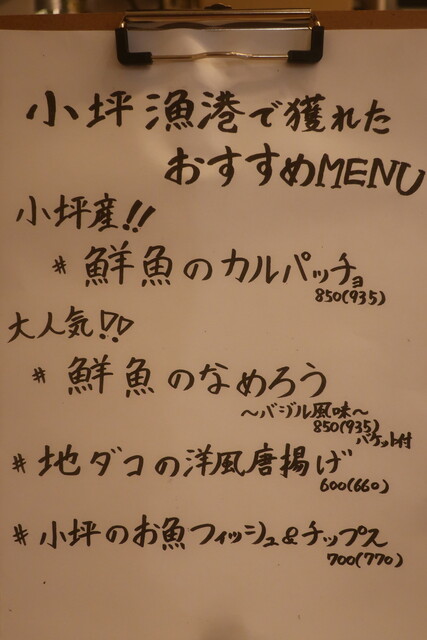 小坪漁港で獲れた
おすすめMENU
小坪産!!
# 鮮魚のカルパッチョ
850(935)
大人気!!
# 鮮魚のなめろう
〜バジル風味〜
850(935)
バケット付
# 地ダコの洋風唐揚げ
600(660)
# 小坪のお魚フィッシュ&チップス
700(770)